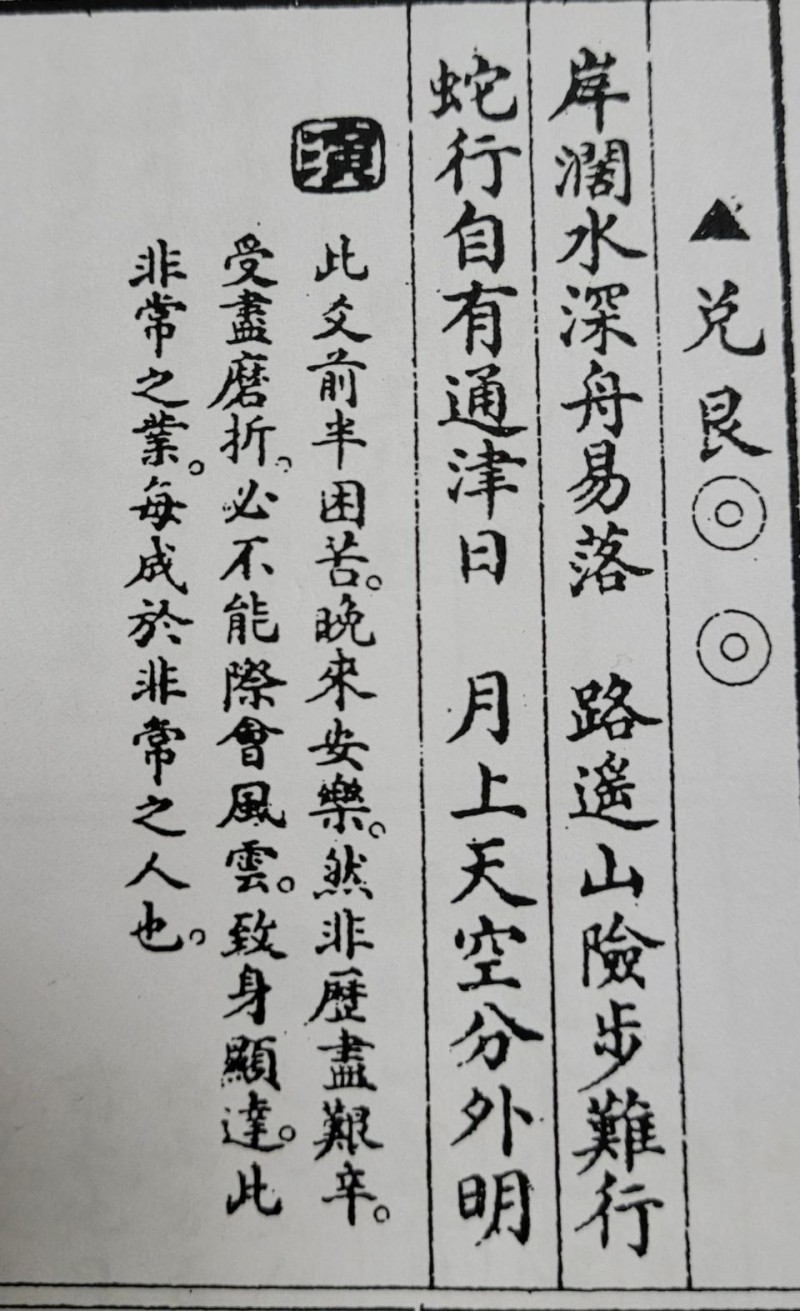 ▲兑艮◎◎
岸濶水深舟易落　路遥山險步難行
蛇行自有通津日　月上天空分外明
演
此爻前半困苦。晚來安樂。然非歷盡艱辛。
受盡磨折。必不能際會風雲。致身顯達。此
非常之業。每成於非常之人也。